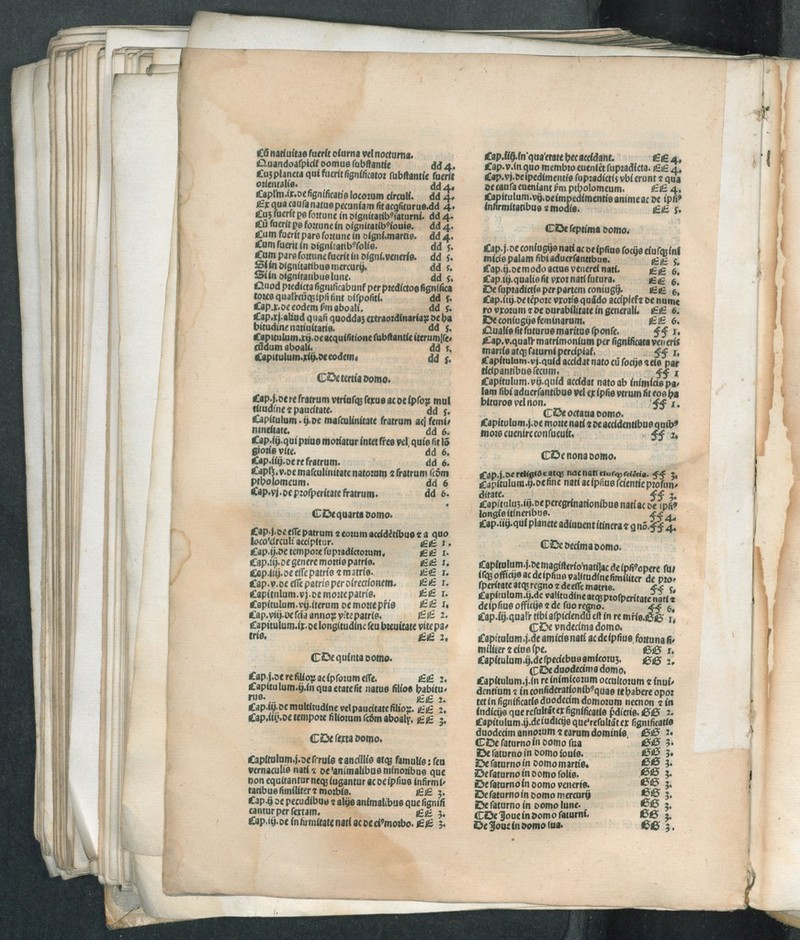 Cũ natiuitas fuerit diurna vel nocturna.
Quandoaspicit domus substantie dd 4.
Cuȝ planeta qui fuerit significator substantie fuerit
orientalis. dd 4.
Capľm.ix.de significatis locorum circuli. dd 4.
Ex qua causa natus pecuniam sit acq̃siturus.dd 4.
Cuȝ fuerit ps fortune in dignitatibꝰ saturni. dd 4.
Cũ fuerit ps fortune in dignitatibꝰ iouis. dd 4.
Cum fuerit pars fortune in digni.martis. dd 4.
Cum fuerit in dignitatibꝰ solis. dd 5.
Cum pars fortune fuerit in digni.veneris. dd 5.
Si in dignitatibus mercurij. dd 5.
Si in dignitatibus lune. dd 5.
Quod predicta significabunt per predictos significa
tores qualescũqȝ ipsi sint dispositi. dd 5.
Cap.x.de eodem ẜm aboali. dd 5.
Cap.xj.aliud quasi quoddaȝ extraordinariaꝝ de ha
bitudine natiuitatis. dd 5.
Capitulum.xij.de acquisitione substantie iterum se-
cũdum aboali. dd 5.
Capitulum.xiij.de eodem. dd 5.
¶De tertia domo.
Cap.j.de re fratrum vtriusqȝ sexus ac de ipsoꝝ mul
titudine ⁊ paucitate. dd 5.
Capitulum.ij.de masculinitate fratrum atqȝ femi-
nineitate. dd 6.
Cap.iij.qui prius moriatur inter fres vel quis sit lõ
gioris vite. dd 6.
Cap.iiij.de re fratrum. dd 6.
Capľȝ.v.de masculinitate natorum ⁊ fratrum scðm
ptholomeum. dd 6
Cap.vj.de prosperitate fratrum. dd 6.
¶De quarta domo.
Cap.j.de esse patrum ⁊ eorum accidẽtibus ⁊ a quo
loco circuli accipitur. EE 1.
Cap.ij.de tempore supradictorum. EE 1.
Cap.iij.de genere mortis patris. EE 1.
Cap.iiij.de esse patris ⁊ matris. EE 1.
Cap.v.de esse patris per directionem. EE 1.
Capitulum.vj.de morte patris. EE 1.
Capitulum.vij.iterum de morte pr̃is EE 1.
Cap.viij.de scĩa annoꝝ vite patris. EE 2.
Capitulum.ix.de longitudine seu breuitate vite pa-
tris. EE 2.
¶De quinta domo.
Cap.j.de re filioꝝ ac ipsorum esse. EE 2.
Capitulum.ij.in qua etate sit natus filios habitu-
rus. EE 2.
Cap.iij.de multitudine vel paucitate filioꝝ. EE 2.
Cap.iiij.de tempore filiorum scðm aboalȝ. EE 3.
¶De sexta domo.
Capitulum.j.de seruis ⁊ ancillis atqȝ famulis : seu
vernaculis nati ⁊ de animalibus minoribus que
non equitantur neqȝ iugantur ac de ipsius infirmi-
tatibus similiter ⁊ morbis. EE 3.
Cap.ij de pecudibus ⁊ alijs animalibus que signifi
cantur per sextam. EE 3.
Cap.iij.de infirmitate nati ac de eiꝰ morbo. EE 3.
Cap.iiij.in qua etate hec accidant. EE 4.
Cap.v.in quo membro eueniẽt supradicta. EE 4.
Cap.vj.de ĩpedimentis supradictis vbi erunt ⁊ qua
de causa eueniant ẜm ptholomeum. EE 4.
Capitulum.vij.de impedimentis anime ac de ipsiꝰ
infirmitatibus ⁊ modis. EE 5.
¶De septima domo.
Cap.j.de coniugijs nati ac de ipsius socijs eiusqȝ ini
micis palam sibi aduersantibus. EE 5.
Cap.ij.de modo actus venerei nati. EE 6.
Cap.iij.qualis sit vxor nati futura. EE 6.
De supradictis per partem coniugij. EE 6.
Cap.iiij.de tẽpore vxoris quãdo accipiet ⁊ de nume
ro vxorum ⁊ de durabilitate in generali. EE 6.
De coniugijs feminarum. EE 6.
Qualis sit futurus maritus sponse. FF 1.
Cap.v.qualr̃ matrimonium per significata veneris
martis atqȝ saturni percipiat̃. FF 1.
Capitulum.vj.quid accidat nato cũ socijs ⁊ eis par
ticipantibus secum. FF 1
Capitulum.vij.quid accidat nato ab inimicis pa-
lam sibi aduersantibus vel ex ipsis vtrum sit eos ha
biturus vel non. FF 1.
¶De octaua domo.
Capitulum.j.de morte nati ⁊ de accidentibus quibꝰ
mors euenire consueuit. FF 2.
¶De nona domo.
Cap.j.de religiõe atqȝ fide nati eiusqȝ sciẽtia. FF 3.
Capitulum.ij.de fine nati ac ipsius scientie profun-
ditate. FF 3.
Capituluȝ.iij.de peregrinationibus nati ac de ipsiꝰ
longis itineribus. FF 4.
Cap.iiij.qui planete adiuuent itinera ⁊ q̃ nõ. FF 4.
¶De decima domo.
Capitulum.j.de magisterio nati ac de ipsiꝰ opere su-
isqȝ officijs ac de ipsius valitudine similiter de pro-
speritate atqȝ regno ⁊ de esse matris. FF 5.
Capitulum.ij.de valitudine atqȝ prosperitate nati ⁊
de ipsius officijs ⁊ de suo regno. FF 6.
Cap.iij.qualr̃ tibi aspiciendũ est in re mr̃is. GG 1.
¶De vndecima domo.
Capitulum.j.de amicis nati ac de ipsius fortuna si-
militer ⁊ eius spe. GG 1.
Capitulum.ij.de speciebus amicoruȝ. GG 2.
¶De duodecima domo.
Capitulum.j.in re inimicorum occultorum ⁊ inui-
dentium ⁊ in considerationibꝰ quas te habere opor
tet in significatis duodecim domorum necnon ⁊ in
iudicijs que resultãt ex significatis p̃dictis. GG 2.
Capitulum.ij.de iudicijs que resultãt ex significatis
duodecim annorum ⁊ earum dominis. GG 2.
¶De saturno in domo sua GG 3.
De saturno in domo iouis. GG 3.
De saturno in domo martis. GG 3.
De saturno in domo solis. GG 3.
De saturno in domo veneris. GG 3.
De saturno in domo mercurij GG 3.
De saturno in domo lune. GG 3.
¶De Joue in domo saturni. GG 3.
De Joue in domo sua. GG 3.